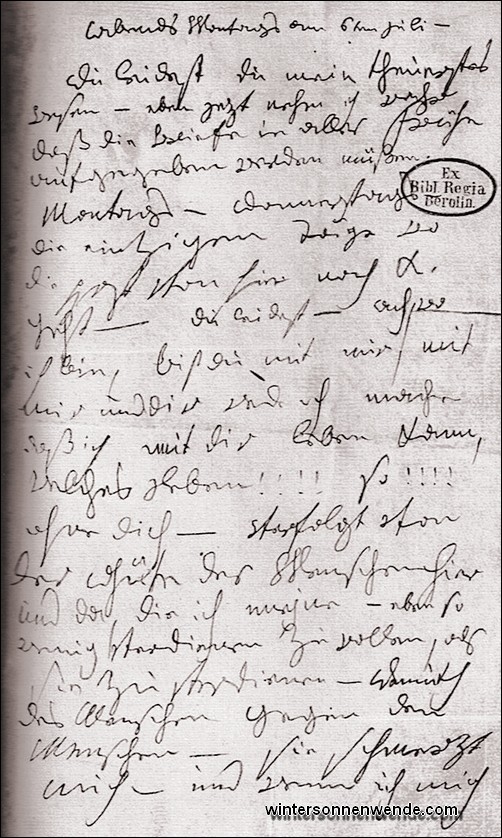 Abends Montags am 6ten juli –
Du leidest du mein theuerstes
wesen – eben jezt nehme ich wahr
daß die briefe in aller Frühe
aufgegeben werden müßen.
Montags – Donnerstags –
die eintzigen täge wo
die post von hier nach K.
geht – du leidest – ach, wo
ich bin, bist du mit mir, mit
mir und dir werde ich machen
daß ich mit dir leben kann,
welches Leben!!!! so!!!!
ohne dich – Verfolgt von
der Güte der Menschen hier
und da, die ich meyne – eben so
wenig verdienen zu wollen, als
sie zu verdienen – Demuth
des Menschen gegen den
Menschen – sie schmerzt
mich – und wenn ich mich
Ex
Bibl. Regia
Berolin.
wintersonnenwende.com